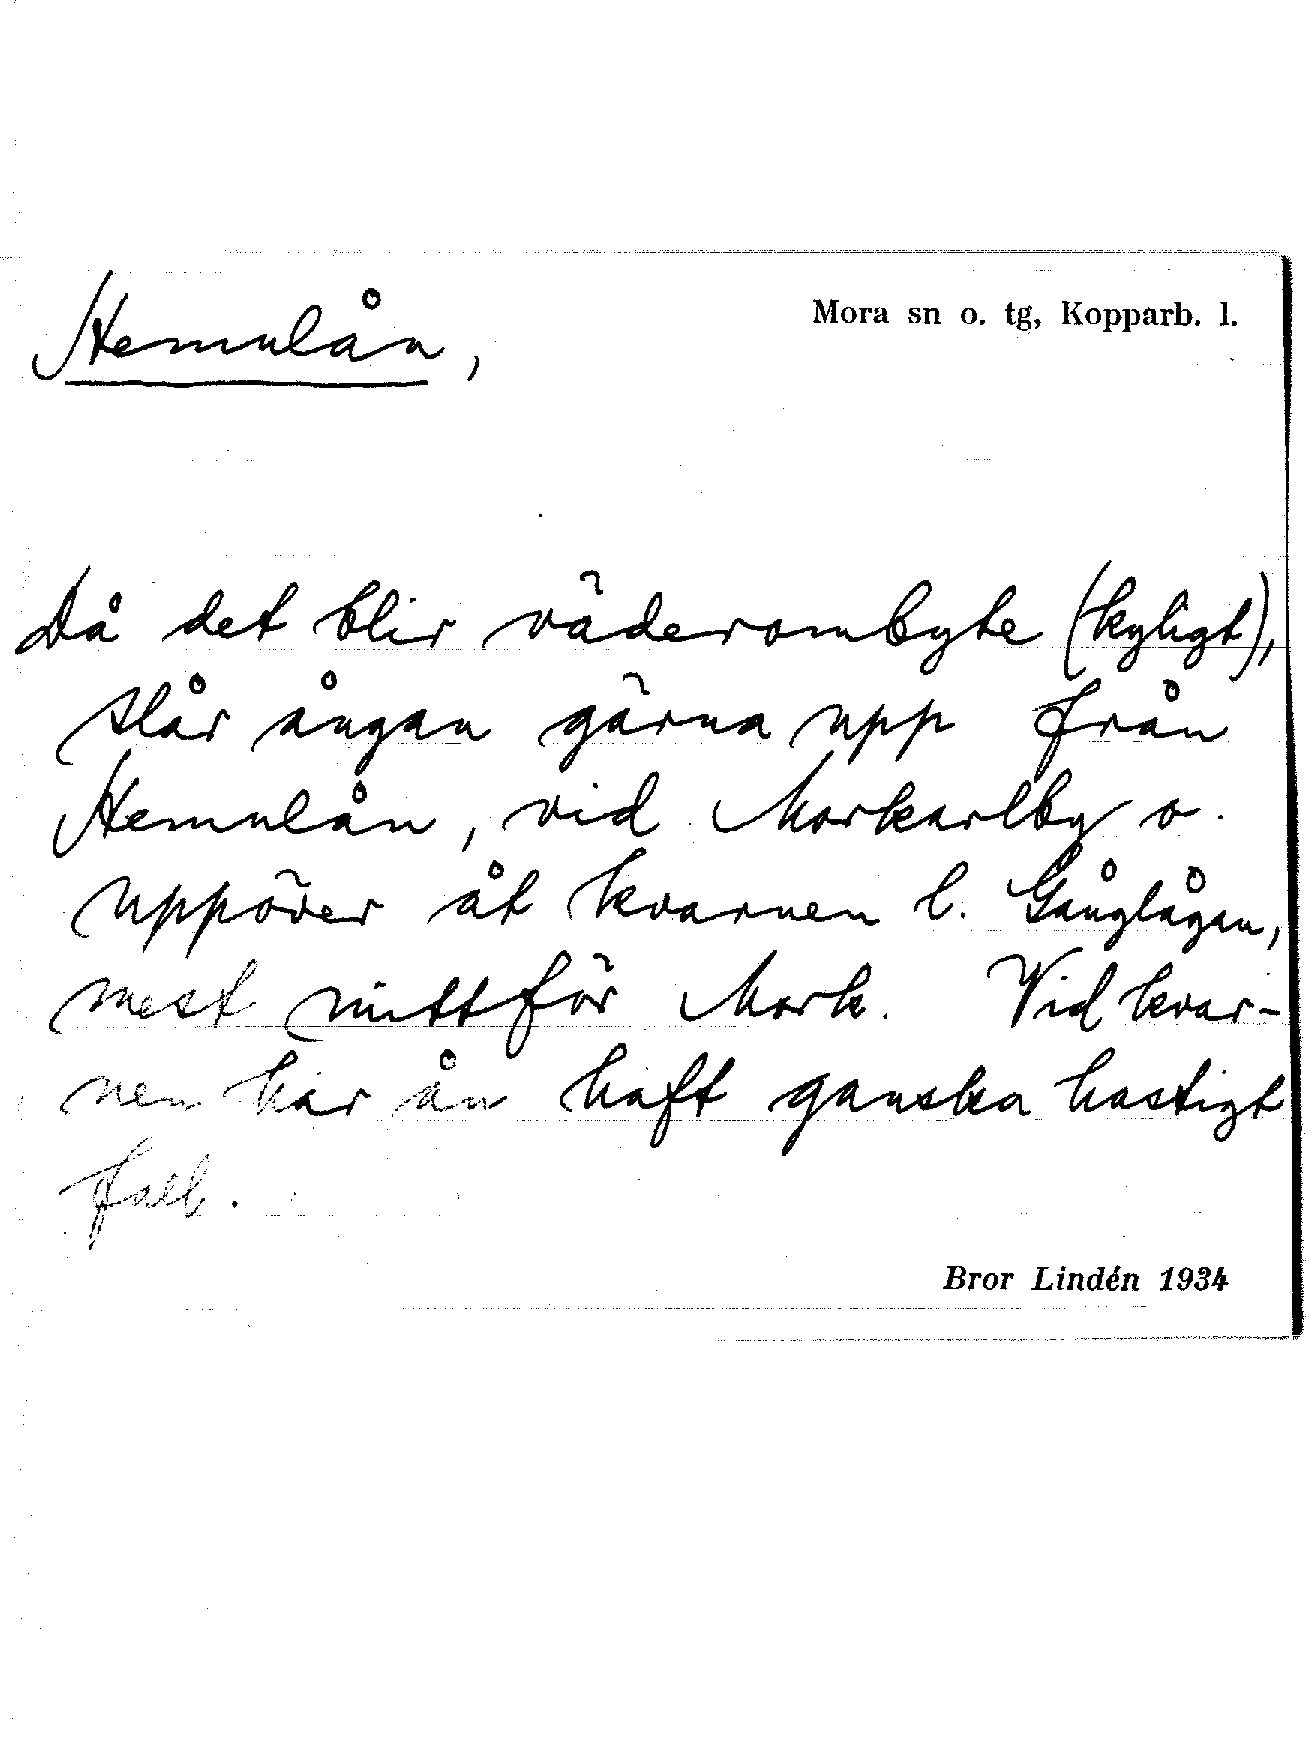 Hemulån,
Mora sn o. tg, Kopparb. l.
Då det blir väderombyte (kyligt),
slår ångan gärna upp från
Hemulån, vid Morkarlby o.
uppöver åt kvarnen l. Gånglågan,
mest mittför Mork. Vid kvar-
nen har ån haft ganska hastigt
fall.
Bror Lindén 1934